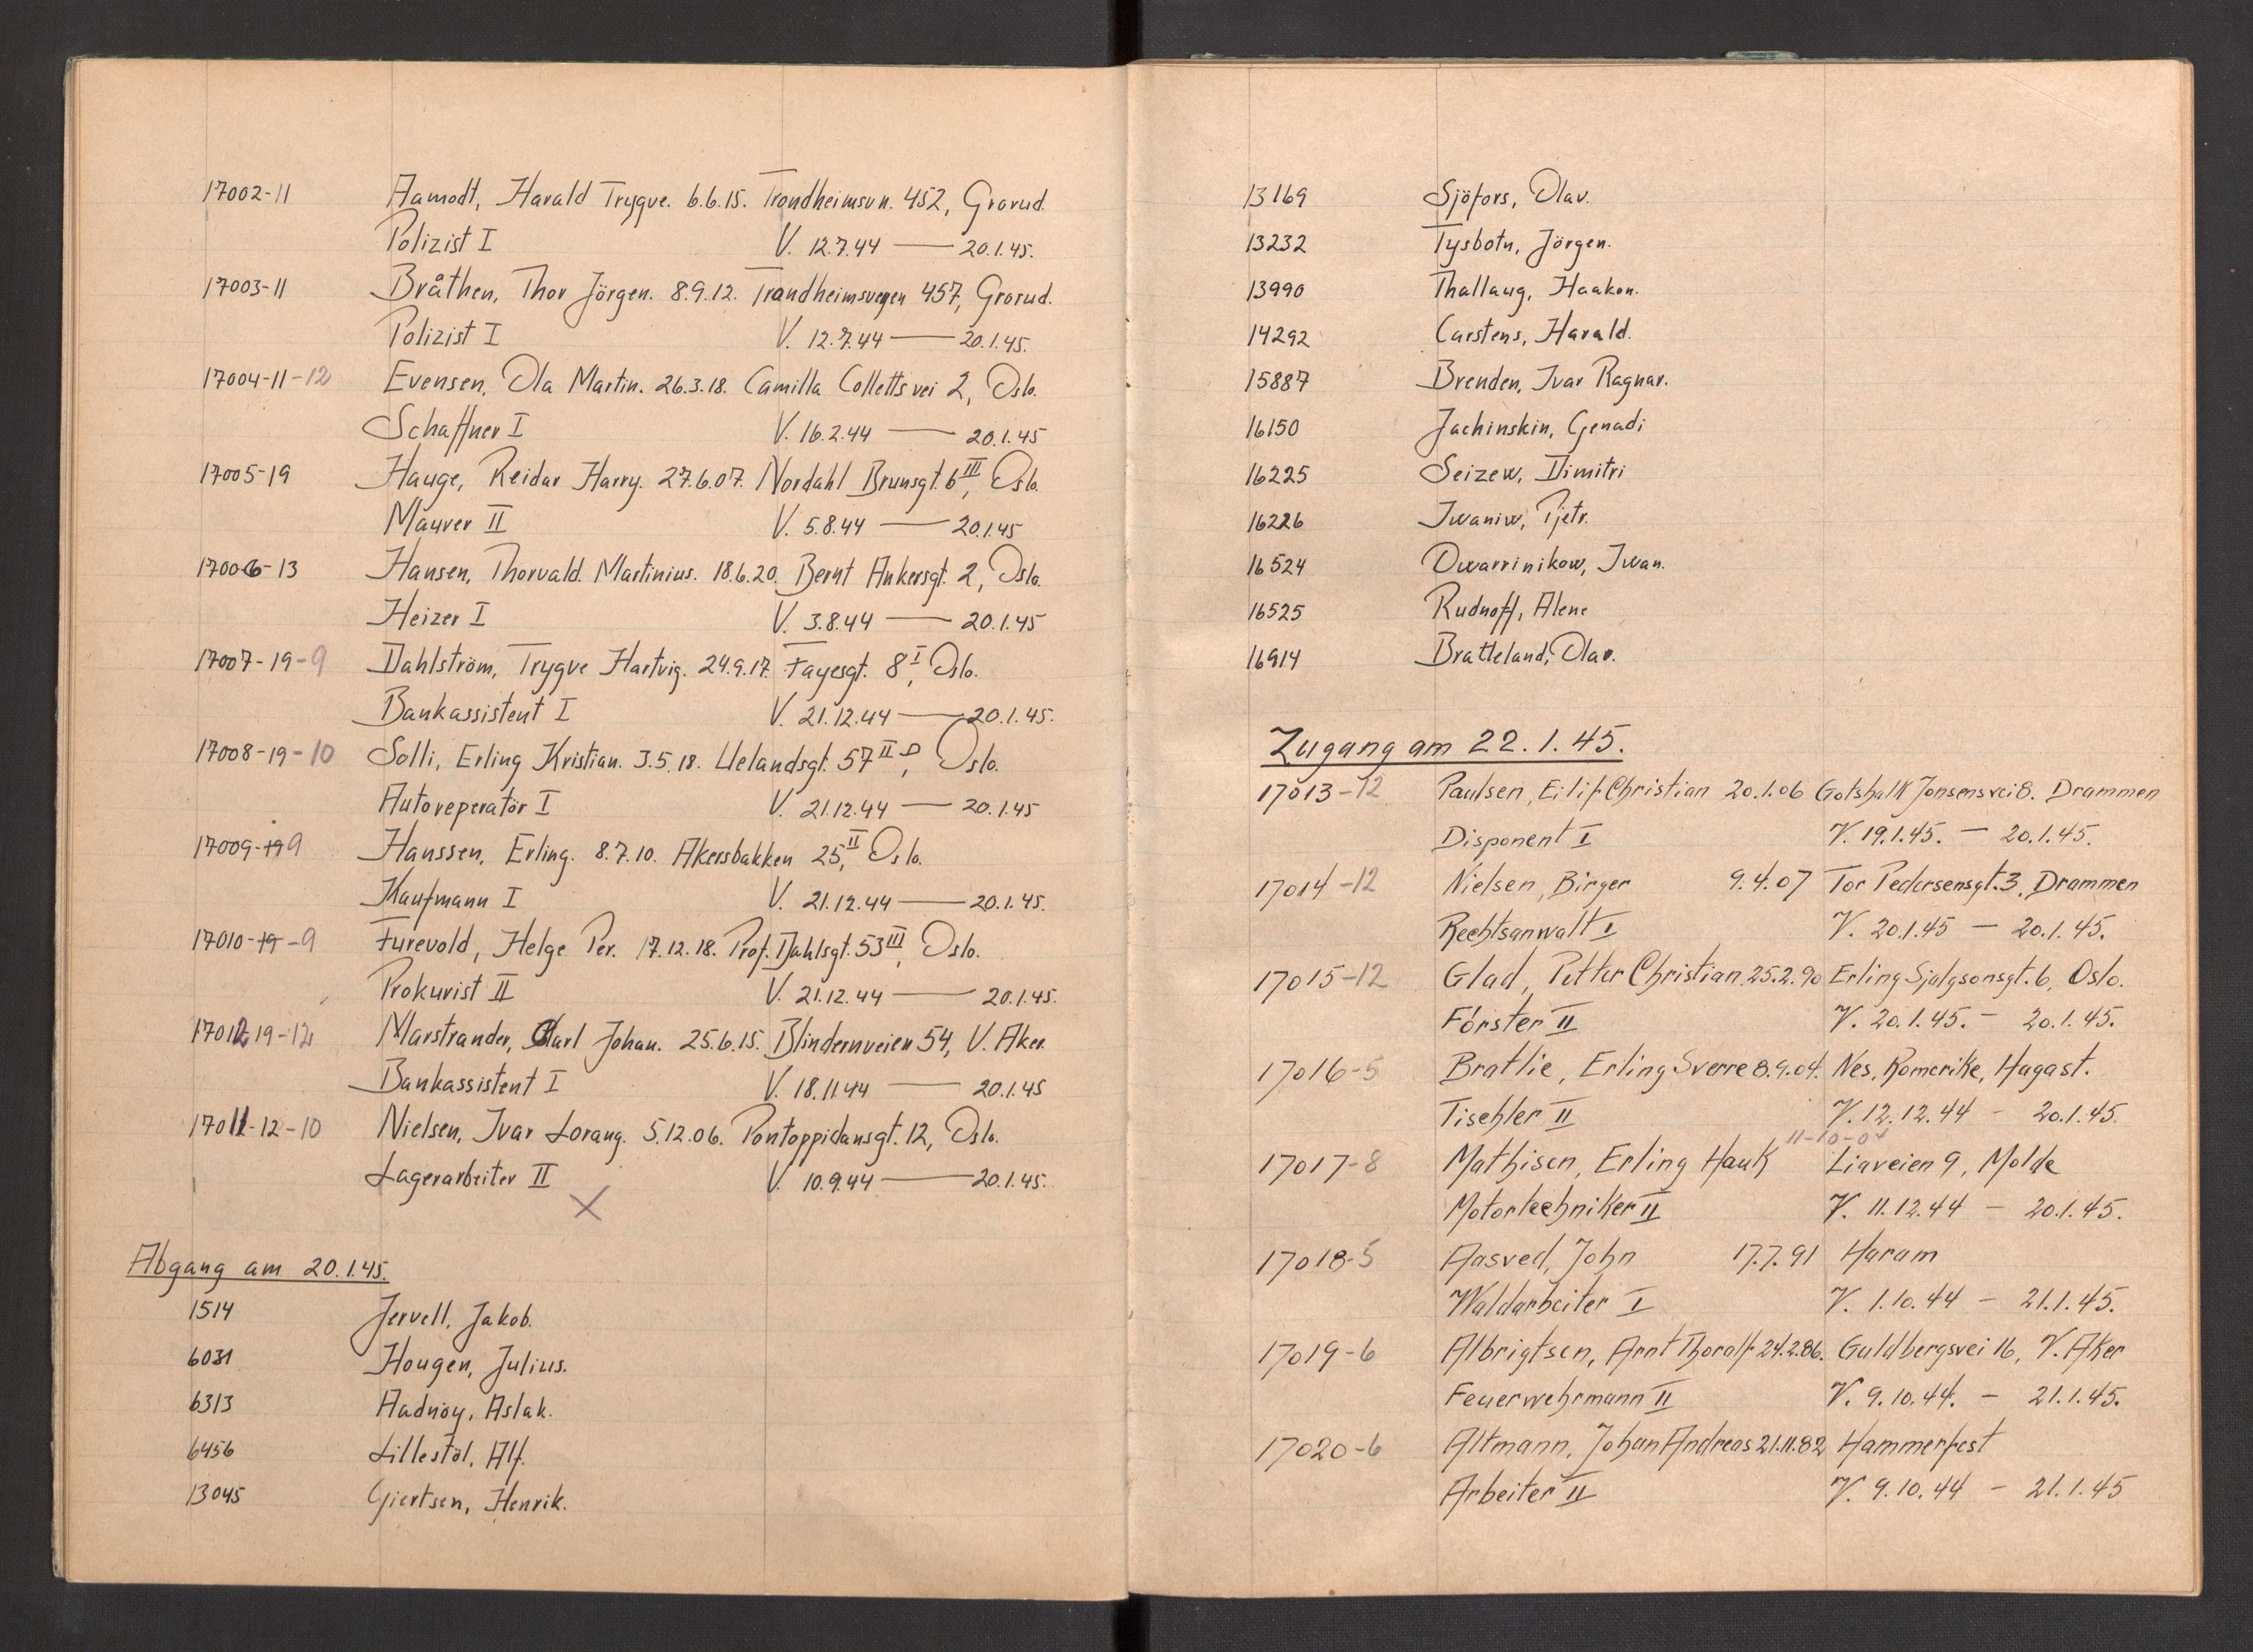 17002-11 Aamodt, Harald Trygve. 6.6.15. Trondheimsvn. 452, Grorud.
Polizist I V. 12.7.44 — 20.1.45.
17003-11 Bråthen, Thor Jörgen. 8.9.12. Trondheimsvegen 457, Grorud.
Polizist I V. 12.7.44 — 20.1.45.
17004-11-12 Evensen, Ola Martin. 26.3.18. Camilla Colletts vei 2, Oslo.
Schaffner I V. 16.2.44 — 20.1.45
17005-19 Hauge, Reidar Harry. 27.6.07. Nordahl Brunsgt. 6 III, Oslo.
Maurer II V. 5.8.44 — 20.1.45
17006-13 Hansen, Thorvald Martinius. 18.6.20. Bernt Ankersgt. 2, Oslo.
Heizer I V. 3.8.44 — 20.1.45
17007-19-9 Dahlström, Trygve Hartvig. 24.9.17. Fayesgt. 8 I, Oslo.
Bankassistent I V. 21.12.44 — 20.1.45.
17008-19-10 Solli, Erling Kristian. 3.5.18. Uelandsgt. 57 II, Oslo.
Autoreperatör I V. 21.12.44 — 20.1.45
17009-19 9 Hanssen, Erling. 8.7.10. Akersbakken 25, II Oslo.
Kaufmann I V. 21.12.44 — 20.1.45.
17010-19-9 Furevold, Helge Per. 17.12.18. Prof. Dahlsgt. 53 III, Oslo.
Prokurist II V. 21.12.44 — 20.1.45.
17012 19-12 Marstrander, Carl Johan. 25.6.15. Blindernveien 54, V. Aker.
Bankassistent I V. 18.11.44 — 20.1.45
17011-12-10 Nielsen, Ivar Lorang. 5.12.06. Pontoppidansgt. 12, Oslo.
Lagerarbeiter II V. 10.9.44 — 20.1.45.
X
Abgang am 20.1.45.
1514 Jervell, Jakob.
6031 Hougen, Julius.
6313 Aadnöy, Aslak.
6456 Lillestöl, Alf.
13045 Giertsen, Henrik.
13169 Sjöfors, Olav.
13232 Tysbotn, Jörgen.
13990 Thallaug, Haakon.
14292 Carstens, Harald.
15887 Brenden, Ivar Ragnar.
16150 Jachinskin, Genadi
16225 Seizew, Dimitri
16226 Iwaniw, Pjetr.
16524 Dwarrinikow, Iwan.
16525 Rudnoff, Alene
16914 Bratteland, Olav.
Zugang am 22.1.45.
17013-12 Paulsen, Eilif Christian 20.1.06 Gotshalk Jonsensvei 8. Drammen
Disponent I V. 19.1.45. — 20.1.45.
17014-12 Nielsen, Birger 9.4.07 Tor Pedersensgt. 3, Drammen
Rechtsanwalt I V. 20.1.45 — 20.1.45.
17015-12 Glad, Petter Christian 25.2.90 Erling Sjalgsonsgt. 6, Oslo.
Förster II V. 20.1.45. — 20.1.45.
17016-5 Bratlie, Erling Sverre 8.9.04. Nes, Romerike, Hagast.
Tischler II V. 12.12.44 - 20.1.45.
11-10-04
17017-8 Mathisen, Erling Hauk Liaveien 9, Molde
Motortechniker II V. 11.12.44 — 20.1.45.
17018-5 Aasved, John 17.7.91 Haram
Waldarbeiter I V. 1.10.44 — 21.1.45.
17019-6 Albrigtsen, Arnt Thoralf 24.2.86. Guldbergsvei 16, V. Aker
Feuerwehrmann II V. 9.10.44. — 21.1.45.
17020-6 Altmann, Johan Andreas 21.11.82 Hammerfest
Arbeiter II V. 9.10.44 — 21.1.45